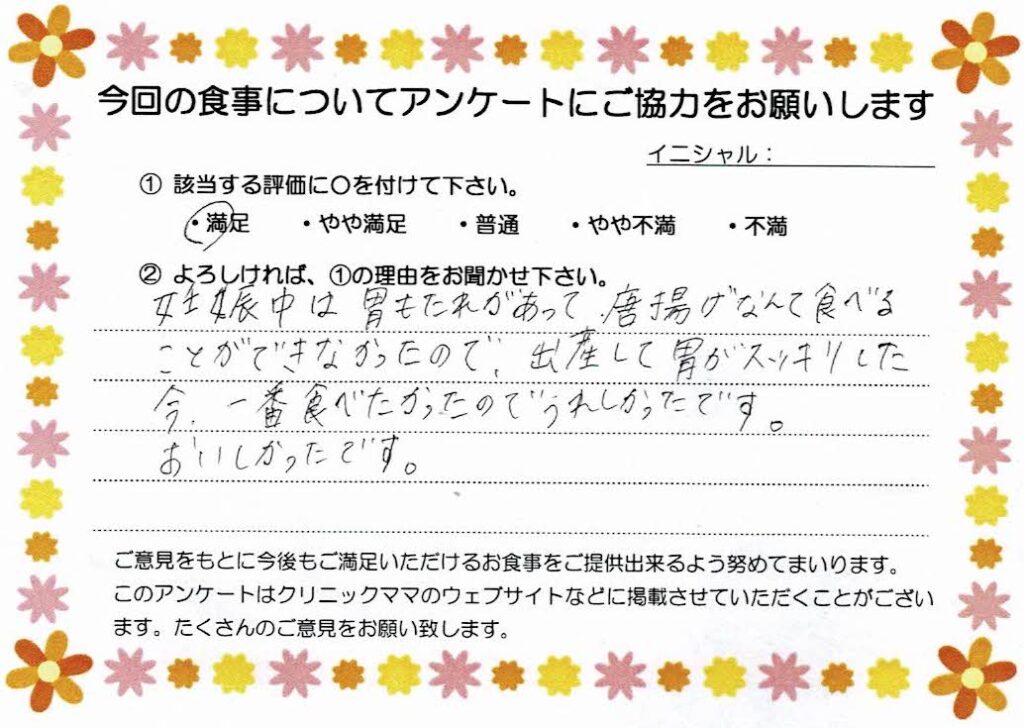 今回の食事についてアンケートにご協力をお願いします
イニシャル：
① 該当する評価に○を付けて下さい。
・満足 ・やや満足 ・普通 ・やや不満 ・不満
② よろしければ、①の理由をお聞かせ下さい。
妊娠中は胃もたれがあって、唐揚げなんて食べる
ことができなかったので、出産して胃がスッキリした
今、一番食べたかったのでうれしかったです。
おいしかったです。
ご意見をもとに今後もご満足いただけるお食事をご提供出来るよう努めてまいります。
このアンケートはクリニックママのウェブサイトなどに掲載させていただくことがござい
ます。たくさんのご意見をお願い致します。